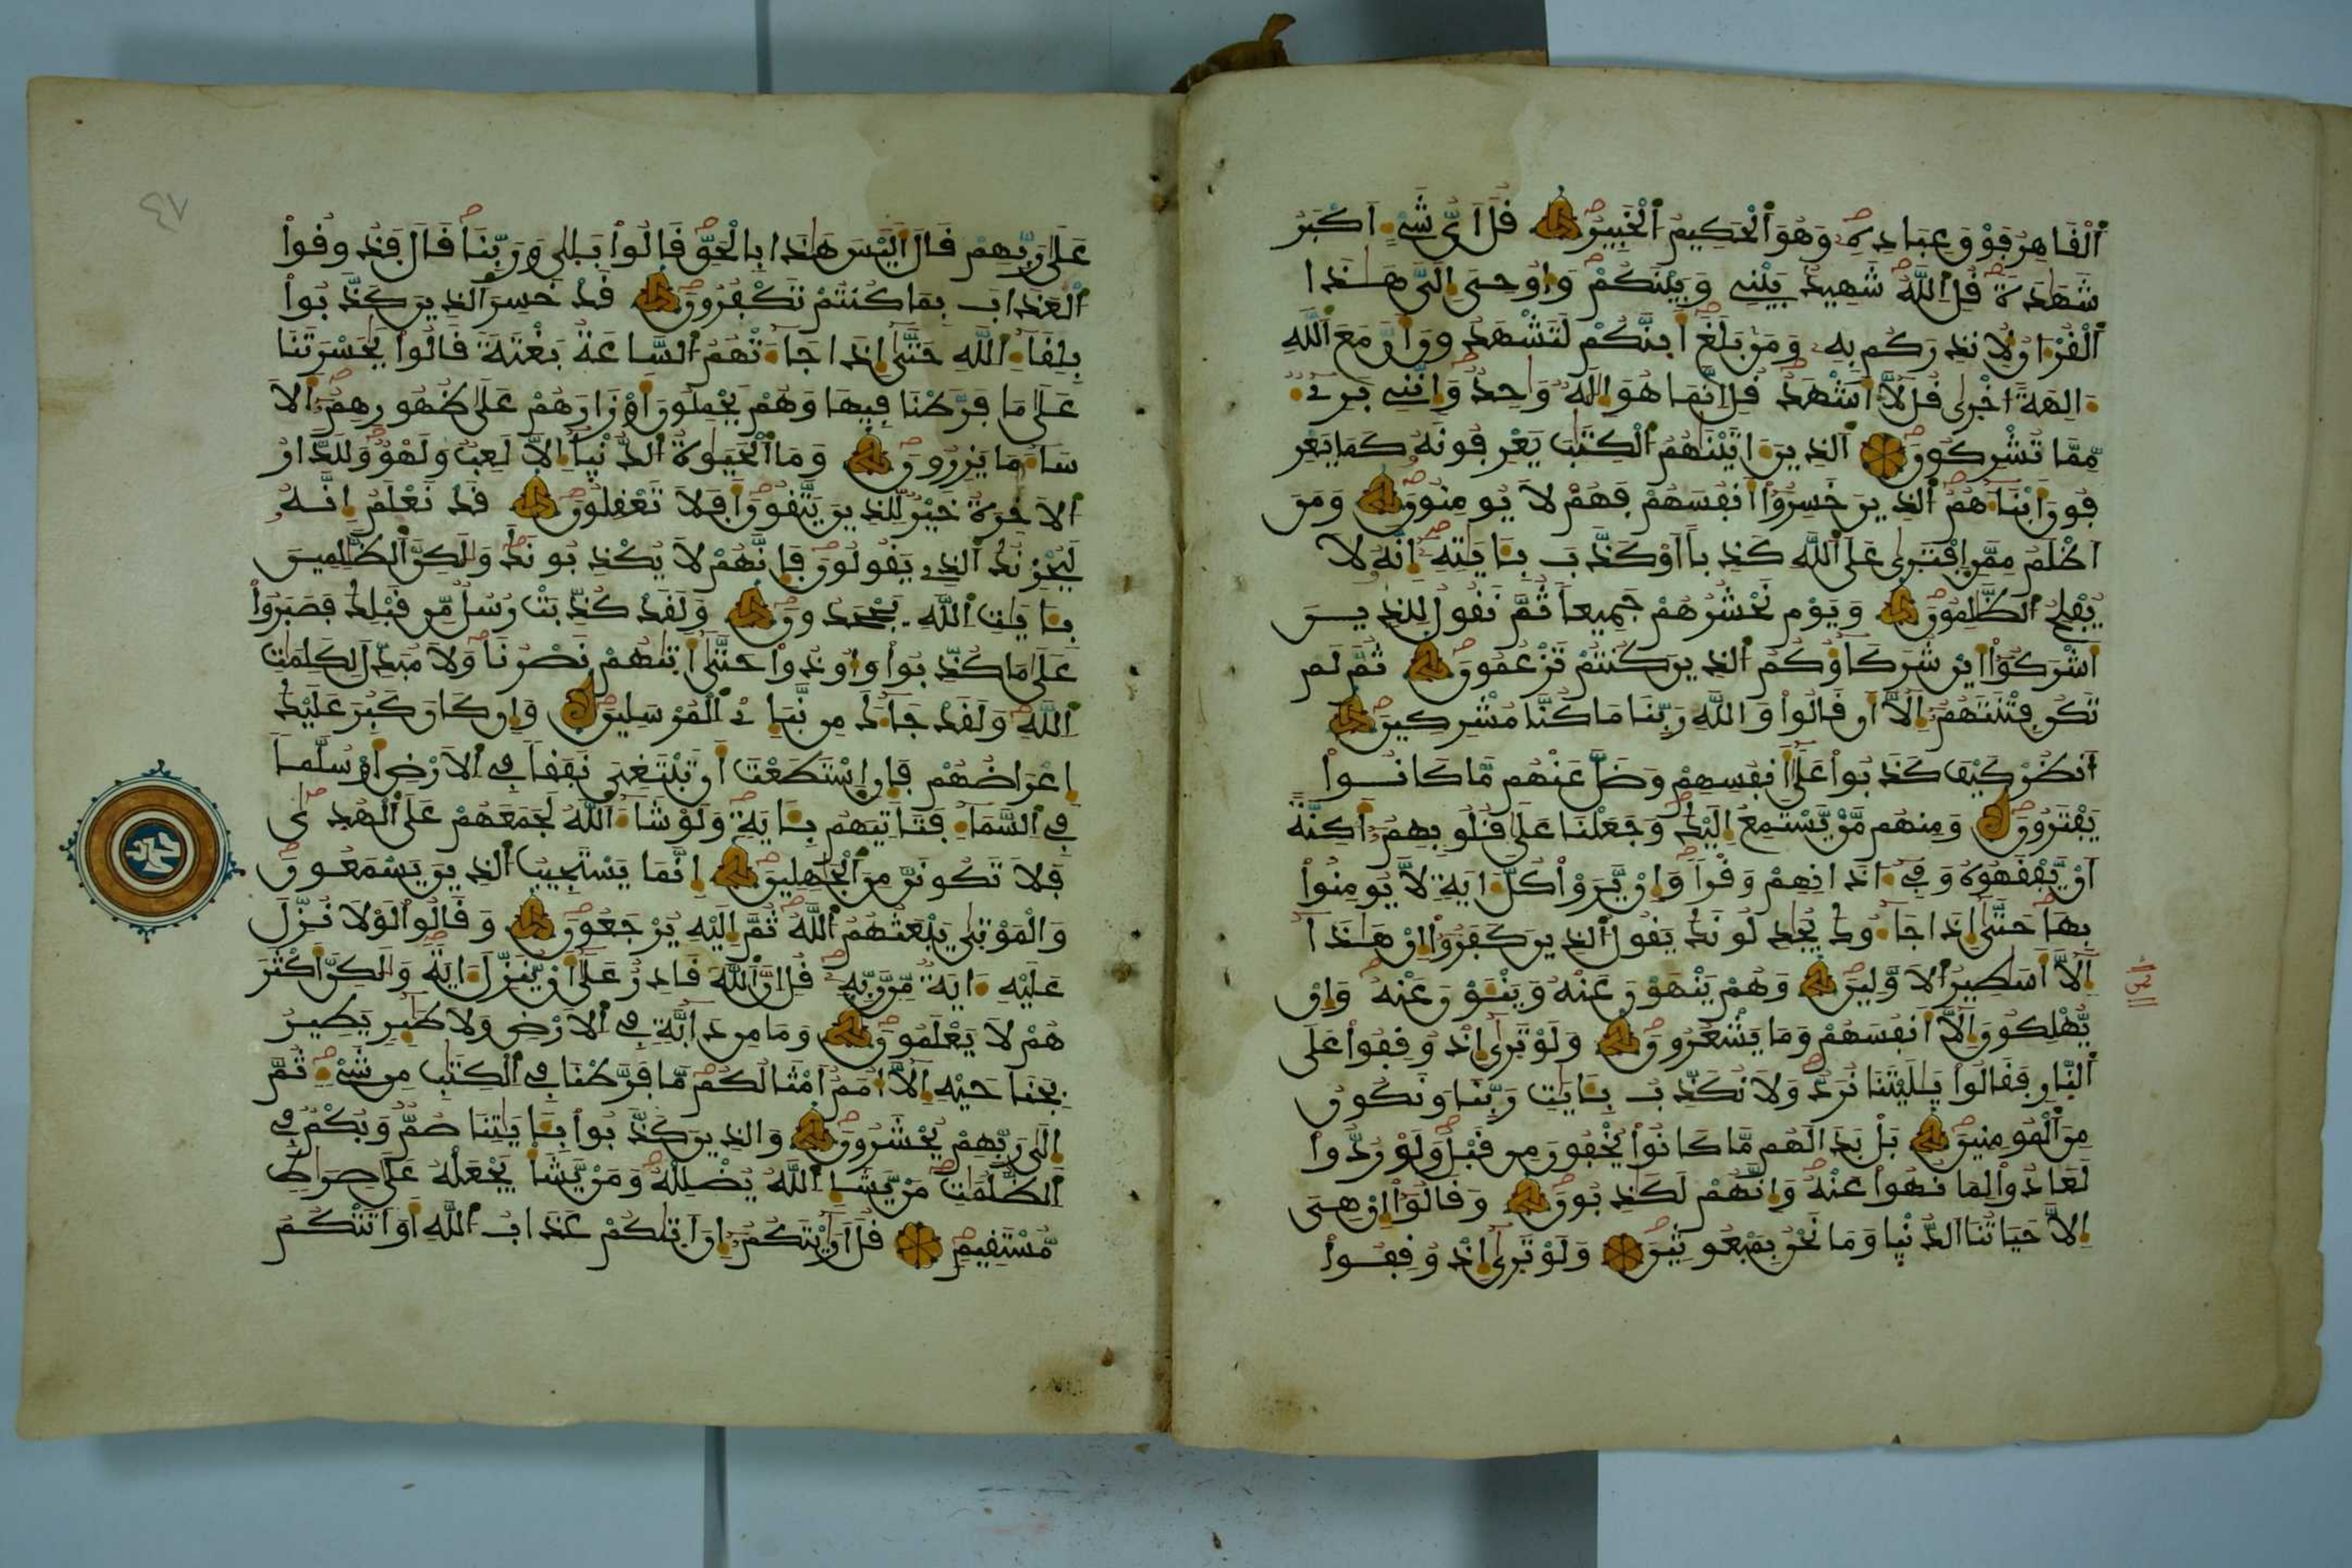 اَ۬لْقَاهِرُ فَوْقَ عِبَادِهِۦ وَهُوَ اَ۬لْحَكِيمُ اُ۬لْخَبِيرُ قُلَ اَيُّ شَيْءٍ اَكْبَرُ
شَهَٰدَةٗ قُلِ اِ۬للَّهُ شَهِيدُۢ بَيْنِي وَبَيْنَكُمْ وَأُوحِيَ إِلَيَّ هَٰذَا
اَ۬لْقُرْءَانُ لِأُنذِرَكُم بِهِۦ وَمَنۢ بَلَغَ أَئِنَّكُمْ لَتَشْهَدُونَ أَنَّ مَعَ اَ۬للَّهِ
ءَالِهَةً اُخْرَىٰ قُل لَّآ أَشْهَدُ قُلِ اِنَّمَا هُوَ إِلَٰهٞ وَٰحِدٞ وَإِنَّنِي بَرِےٓءٞ
مِّمَّا تُشْرِكُونَ اَ۬لذِينَ ءَاتَيْنَٰهُمُ اُ۬لْكِتَٰبَ يَعْرِفُونَهُۥ كَمَا يَعْرِ
فُونَ أَبْنَآءَهُمُ اُ۬لذِينَ خَسِرُوٓاْ أَنفُسَهُمْ فَهُمْ لَا يُومِنُونَ وَمَنَ
اَظْلَمُ مِمَّنِ اِ۪فْتَر۪ىٰ عَلَى اَ۬للَّهِ كَذِباً اَوْ كَذَّبَ بِـَٔايَٰتِهِۦٓ إِنَّهُۥ لَا
يُفْلِحُ اُ۬لظَّٰلِمُونَ وَيَوْمَ نَحْشُرُهُمْ جَمِيعاٗ ثُمَّ نَقُولُ لِلذِينَ
أَشْرَكُوٓاْ أَيْنَ شُرَكَآؤُكُمُ اُ۬لذِينَ كُنتُمْ تَزْعُمُونَ ثُمَّ لَمْ
تَكُن فِتْنَتَهُمُۥٓ إِلَّآ أَن قَالُواْ وَاللَّهِ رَبِّنَا مَا كُنَّا مُشْرِكِينَ
اَ۟نظُرْ كَيْفَ كَذَبُواْ عَلَىٰٓ أَنفُسِهِمْ وَضَلَّ عَنْهُم مَّا كَانُواْ
يَفْتَرُونَ وَمِنْهُم مَّنْ يَّسْتَمِعُ إِلَيْكَ وَجَعَلْنَا عَلَىٰ قُلُوبِهِمُۥٓ أَكِنَّةً
اَنْ يَّفْقَهُوهُ وَفِےٓ ءَاذَانِهِمْ وَقْراٗ وَإِنْ يَّرَوْاْ كُلَّ ءَايَةٖ لَّا يُومِنُواْ
بِهَا حَتَّىٰٓ إِذَا جَآءُوكَ يُجَٰدِلُونَكَ يَقُولُ اُ۬لذِينَ كَفَرُوٓاْ إِنْ هَٰذَآ
إِلَّآ أَسَٰطِيرُ اُ۬لَاوَّلِينَ وَهُمْ يَنْهَوْنَ عَنْهُ وَيَنْـَٔوْنَ عَنْهُ وَإِنْ
يُّهْلِكُونَ إِلَّآ أَنفُسَهُمْ وَمَا يَشْعُرُونَ وَلَوْ تَر۪ىٰٓ إِذْ وُقِفُواْ عَلَى
اَ۬لنّ۪ارِ فَقَالُواْ يَٰلَيْتَنَا نُرَدُّ وَلَا نُكَذِّبُ بِـَٔايَٰتِ رَبِّنَا وَنَكُونُ
مِنَ اَ۬لْمُومِنِينَ بَلْ بَدَا لَهُم مَّا كَانُواْ يُخْفُونَ مِن قَبْلُ وَلَوْ رُدُّواْ
لَعَادُواْ لِمَا نُهُواْ عَنْهُ وَإِنَّهُمْ لَكَٰذِبُونَ وَقَالُوٓاْ إِنْ هِيَ
إِلَّا حَيَاتُنَا اَ۬لدُّنْيَا وَمَا نَحْنُ بِمَبْعُوثِينَ وَلَوْ تَر۪ىٰٓ إِذْ وُقِفُواْ
عَلَىٰ رَبِّهِمْ قَالَ أَلَيْسَ هَٰذَا بِالْحَقِّ قَالُواْ بَلَىٰ وَرَبِّنَا قَالَ فَذُوقُواْ
اُ۬لْعَذَابَ بِمَا كُنتُمْ تَكْفُرُونَ قَدْ خَسِرَ اَ۬لذِينَ كَذَّبُواْ
بِلِقَآءِ اِ۬للَّهِ حَتَّىٰٓ إِذَا جَآءَتْهُمُ اُ۬لسَّاعَةُ بَغْتَةٗ قَالُواْ يَٰحَسْرَتَنَا
عَلَىٰ مَا فَرَّطْنَا فِيهَا وَهُمْ يَحْمِلُونَ أَوْزَارَهُمْ عَلَىٰ ظُهُورِهِمُۥٓ أَلَا
سَآءَ مَا يَزِرُونَ وَمَا اَ۬لْحَيَوٰةُ اُ۬لدُّنْيَآ إِلَّا لَعِبٞ وَلَهْوٞ وَلَلدَّارُ
اُ۬لَاخِرَةُ خَيْرٞ لِّلذِينَ يَتَّقُونَ أَفَلَا تَعْقِلُونَ قَدْ نَعْلَمُ إِنَّهُۥ
لَيُحْزِنُكَ اَ۬لذِے يَقُولُونَ فَإِنَّهُمْ لَا يُكْذِبُونَكَ وَلَٰكِنَّ اَ۬لظَّٰلِمِينَ
بِـَٔايَٰتِ اِ۬للَّهِ يَجْحَدُونَ وَلَقَدْ كُذِّبَتْ رُسُلٞ مِّن قَبْلِكَ فَصَبَرُواْ
عَلَىٰ مَا كُذِّبُواْ وَأُوذُواْ حَتَّىٰٓ أَتَىٰهُمْ نَصْرُنَا وَلَا مُبَدِّلَ لِكَلِمَٰتِ
اِ۬للَّهِ وَلَقَدْ جَآءَكَ مِن نَّبَإِےْ اِ۬لْمُرْسَلِينَ وَإِن كَانَ كَبُرَ عَلَيْكَ
إِعْرَاضُهُمْ فَإِنِ اِ۪سْتَطَعْتَ أَن تَبْتَغِيَ نَفَقاٗ فِے اِ۬لَارْضِ أَوْ سُلَّماٗ
فِے اِ۬لسَّمَآءِ فَتَاتِيَهُم بِـَٔايَةٖ وَلَوْ شَآءَ اَ۬للَّهُ لَجَمَعَهُمْ عَلَى اَ۬لْهُدَىٰ
فَلَا تَكُونَنَّ مِنَ اَ۬لْجَٰهِلِينَ إِنَّمَا يَسْتَجِيبُ اُ۬لذِينَ يَسْمَعُونَ
وَالْمَوْتَىٰ يَبْعَثُهُمُ اُ۬للَّهُ ثُمَّ إِلَيْهِ يُرْجَعُونَ وَقَالُواْ لَوْلَا نُزِّلَ
عَلَيْهِ ءَايَةٞ مِّن رَّبِّهِۦ قُلِ اِنَّ اَ۬للَّهَ قَادِرٌ عَلَىٰٓ أَنْ يُّنَزِّلَ ءَايَةٗ وَلَٰكِنَّ أَكْثَرَ
هُمْ لَا يَعْلَمُونَ وَمَا مِن دَآبَّةٖ فِے اِ۬لَارْضِ وَلَا طَٰٓئِرٖ يَطِيرُ
بِجَنَاحَيْهِ إِلَّآ أُمَمٌ اَمْثَالُكُم مَّا فَرَّطْنَا فِے اِ۬لْكِتَٰبِ مِن شَيْءٖ ثُمَّ
إِلَىٰ رَبِّهِمْ يُحْشَرُونَ وَالذِينَ كَذَّبُواْ بِـَٔايَٰتِنَا صُمّٞ وَبُكْمٞ فِے
اِ۬لظُّلُمَٰتِ مَنْ يَّشَإِ اِ۬للَّهُ يُضْلِلْهُ وَمَنْ يَّشَأْ يَجْعَلْهُ عَلَىٰ صِرَٰطٖ
مُّسْتَقِيمٖ قُلَ اَرَٰٓيْتَكُمُۥٓ إِنَ اَتَىٰكُمْ عَذَابُ اُ۬للَّهِ أَوَ اَتَتْكُمُ